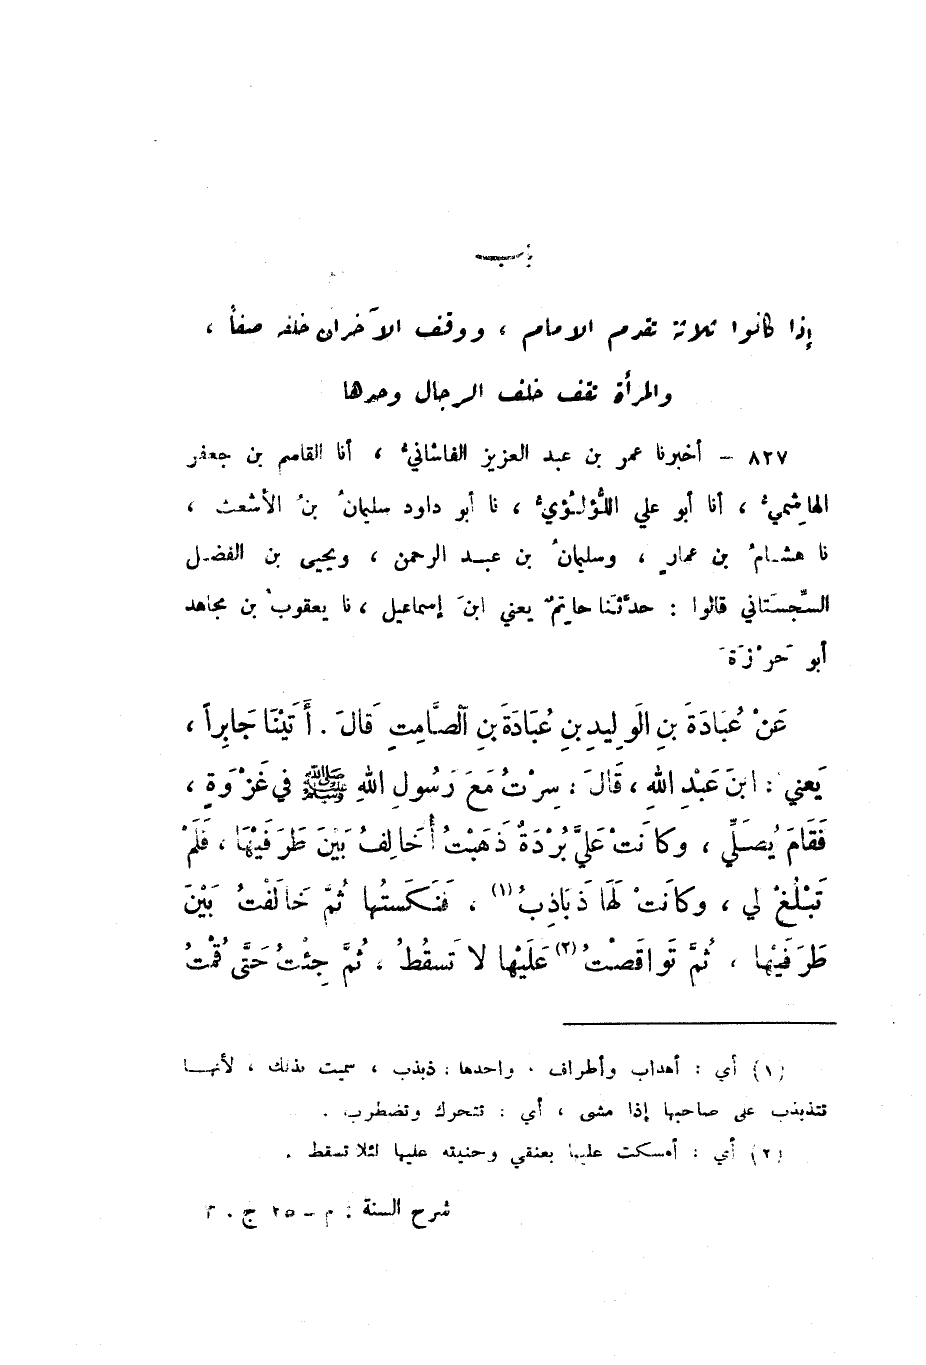 باب
إذا كانوا ثلاثة تقدم الامام ، ووقف الآخران خلفه صفاً ،
والمرأة تقف خلف الرجال وحدها
٨٢٧ – أخبرنا عمر بن عبد العزيز الفاشانيُّ ، أنا القاسم بن جعفر
الهاشميُّ ، أنا أبو علي اللُّؤلُؤيُّ ، نا أبو داود سليمانُ بنُ الأشعث ،
نا هشامُ بن عمارٍ ، وسليمانُ بن عبد الرحمن ، ويحيى بن الفضل
السِّجستَاني قالوا : حدَّثَنا حاتِمٌ يعني ابنَ إسماعيل ، نا يعقوبُ بن مجاهد
أبو حَرْزَةَ
عَنْ عُبَادَةَ بنِ الوَلِيدِ بنِ عُبَادَةَ بنِ ٱلصَّامِتِ قَالَ . أَتَيْنَا جَابِراً ،
يَعني : ابنَ عَبْدِ اللهِ ، قَالَ : سِرْتُ مَعَ رَسُولِ اللهِ ﷺ في غَزْوَةٍ ،
فَقَامَ يُصَلِّي ، وكَانَتْ عَليَّ بُرْدَةٌ ذَهَبْتُ أُخَالِفُ بَيْنَ طَرَفَيْهَا ، فَلَمْ
تَبْلُغْ لي ، وكَانَتْ لَهَا ذَبَاذِبُ (١) ، فَنَكَستُها ثُمَّ خَالَفْتُ بَيْنَ
طَرَفَيْها ، ثُمَّ تَواقَصْتُ (٢) عَلَيْها لا تَسقُطُ ، ثُمَّ جِئْتُ حَتَّى قُمْتُ
(١) أي : أهداب وأطراف . واحدها : ذبذب ، سميت بذلك ، لأنهـا
تتذبذب على صاحبها إذا مشى ، أي : تتحرك وتضطرب .
(٢) أي : أمسكت عليها بعنقي وحنيته عليها لئلا تسقط .
شرح السنة : م – ٢٥ ج . ٣